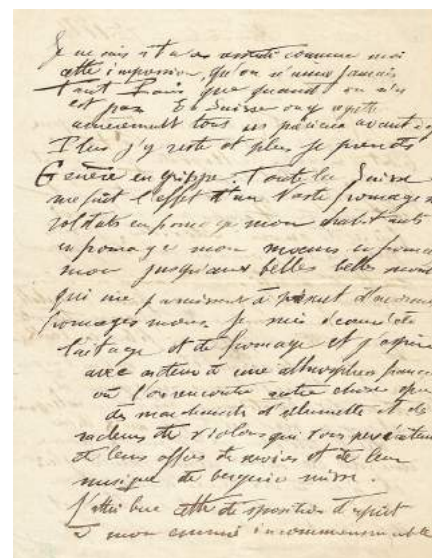 Je ne sais si tu as ressenti comme moi
cette impression, qu'on n'aime jamais
tant Paris que quand on n'y
est pas. En Suisse on y regrette
amèrement tous ces précieux avant
Plus j'y reste et plus je prends
Genève en grippe. Toute la Suisse
me fait l'effet d'un vaste fromage
soldats en fromage mou habitants
en fromage mou maisons en fromage
mou jusqu'aux belles belles
qui me paraissent à présent d'énormes
fromages mous. Je suis écœuré de
laitage et de fromage et j'aspire
avec ardeur à une atmosphère
où l'on rencontre autre chose que
des marchands d'allumettes et des
racleurs de violons qui vous persécutent
de leurs offres de services et de leur
musique de bergerie suisse.
J'attribue cette disposition d'esprit
à mon ennui incommensurable